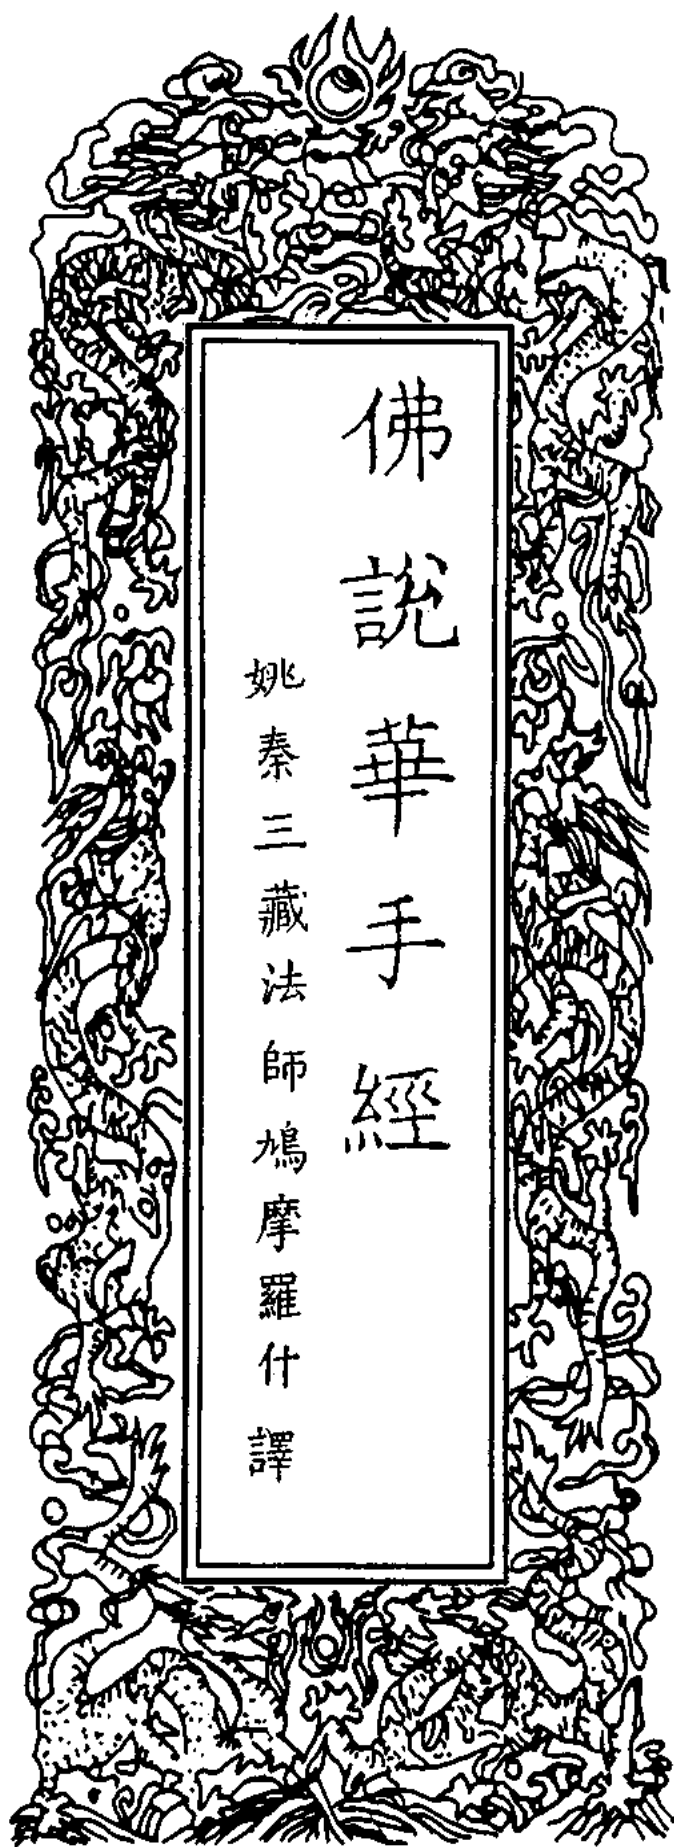 佛說華手經
姚秦三藏法師鳩摩羅什譯